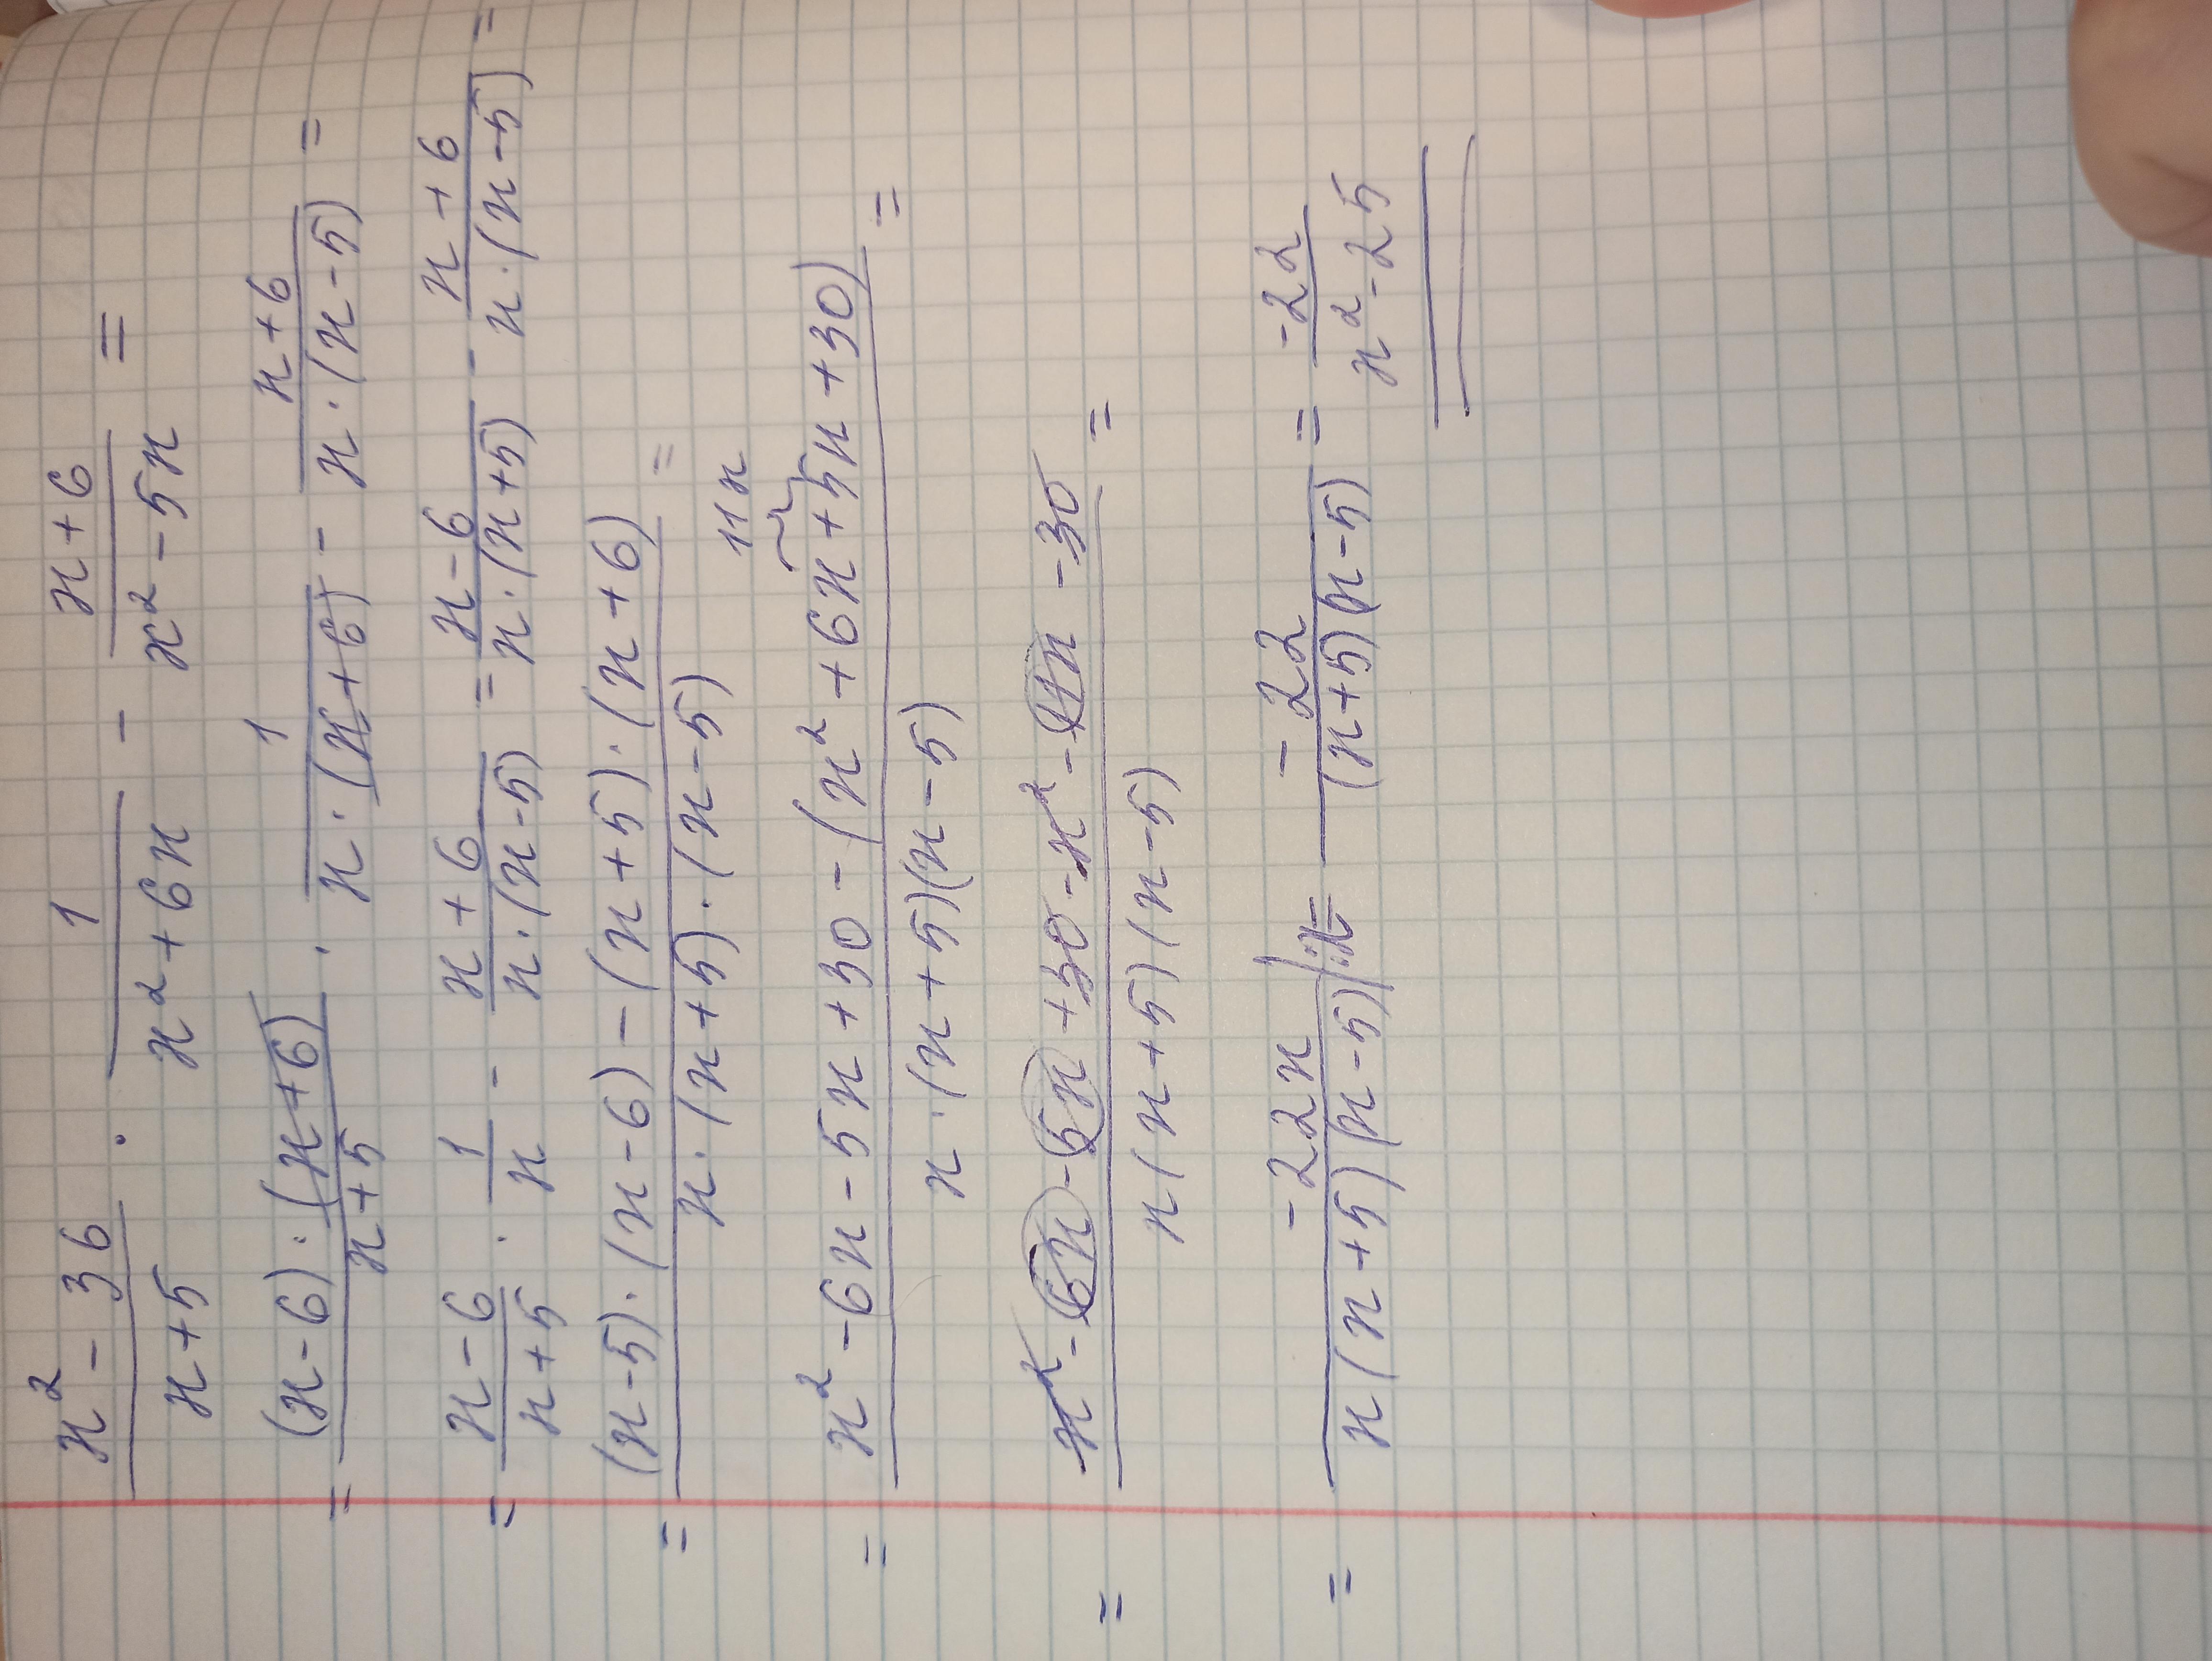 x² - 36 / x + 5 · 1 / x² + 6x - x + 6 / x² - 5x =
= (x - 6) · (x + 6) / x + 5 · 1 / x · (x + 6) - x + 6 / x · (x - 5) =
= x - 6 / x + 5 · 1 / x - x + 6 / x · (x - 5) = x - 6 / x · (x + 5) - x + 6 / x · (x - 5) =
= (x - 5) · (x - 6) - (x + 5) · (x + 6) / x · (x + 5) · (x - 5) =
11x
= x² - 6x - 5x + 30 - (x² + 6x + 5x + 30) / x · (x + 5)(x - 5) =
= x² - 6x - 5x + 30 - x² - 11x - 30 / x(x + 5)(x - 5) =
= -22x / x(x + 5)(x - 5) |:x = -22 / (x + 5)(x - 5) = -22 / x² - 25